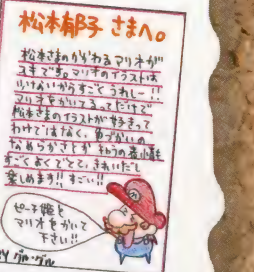 松本郁子 さまへ。
松本さまのかかれるマリオが
スキです。マリオのイラストは
いないからすごく うれしー!!
マリオをかいてるってだけで
松本さまのイラストが好きって
わけではなく、色づかいの
なめらかさとか
すごくよくでてて、きれいだし
楽しめます!! すごい!!
ピーチ姫と
マリオをかいて
下さい!!
BY グル・グル